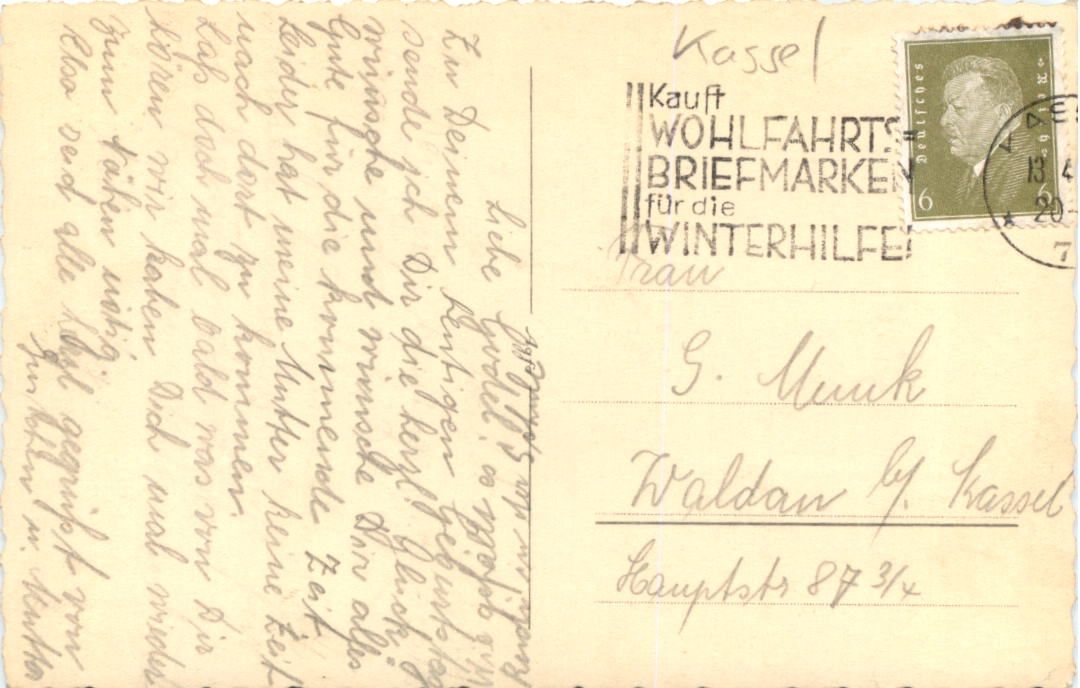 Liebe Gödel!
Zu Deinem heutigen Geburtstag
sende ich Dir die herzl. Glück-
wünsche und wünsche Dir alles
Gute für die kommende Zeit.
Leider hat meine Mutter keine Zeit
nach dort zu kommen.
Laß doch mal bald was von Dir
hören wir haben Dich mal wieder
zum Nähen nötig.
Also seid alle herzl gegrüßt von
Gustchen u. Mutter
Kassel
Kauft
WOHLFAHRTS=
BRIEFMARKEN
für die
WINTERHILFE!
Deutsches Reich
6 6
13 4
20-
7
Frau
G. Munk
Waldau b/. Kassel
Hauptstr 87 3/4